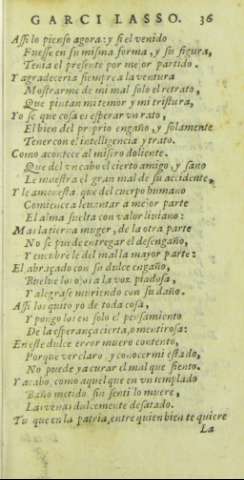 GARCI LASSO. 36
Assi lo pienso agora: y si el venido
Fuesse en su misma forma, y su figura,
Tenia el presente por mejor partido.
Y agradeceria siempre a la ventura
Mostrarme de mi mal solo el retrato,
Que pintan mi temor y mi tristura,
Yo se que cosa es esperar vn rato,
El bien del proprio engaño, y solamente
Tener con el intelligencia y trato.
Como acontece al misero doliente.
Que del vn cabo el cierto amigo, y sano
Le muestra el gran mal de su accidente,
Y le amonesta que del cuerpo humano
Comience a leuantar a mejor parte
El alma suelta con valor liuiano:
Mas la tierna muger, de la otra parte
No se puede entregar el desengaño,
Y encubre le del mal la mayor parte:
El abraçado con su dulce engaño,
Buelue los ojos a la voz piadosa,
Y alegrase muriendo con su daño.
Assi los quito yo de toda cosa,
Y pongo los en solo el pensamiento
De la esperança cierta, o mentirosa:
En este dulce error muero contento,
Porque ver claro, y conocer mi estado,
No puede ya curar el mal que siento.
Y acabo, como aquel que en vn templado
Baño metido sin sentilo muere,
Las venas dulcemente desatado.
Tu que en la patria, entre quien bien te quiere
La